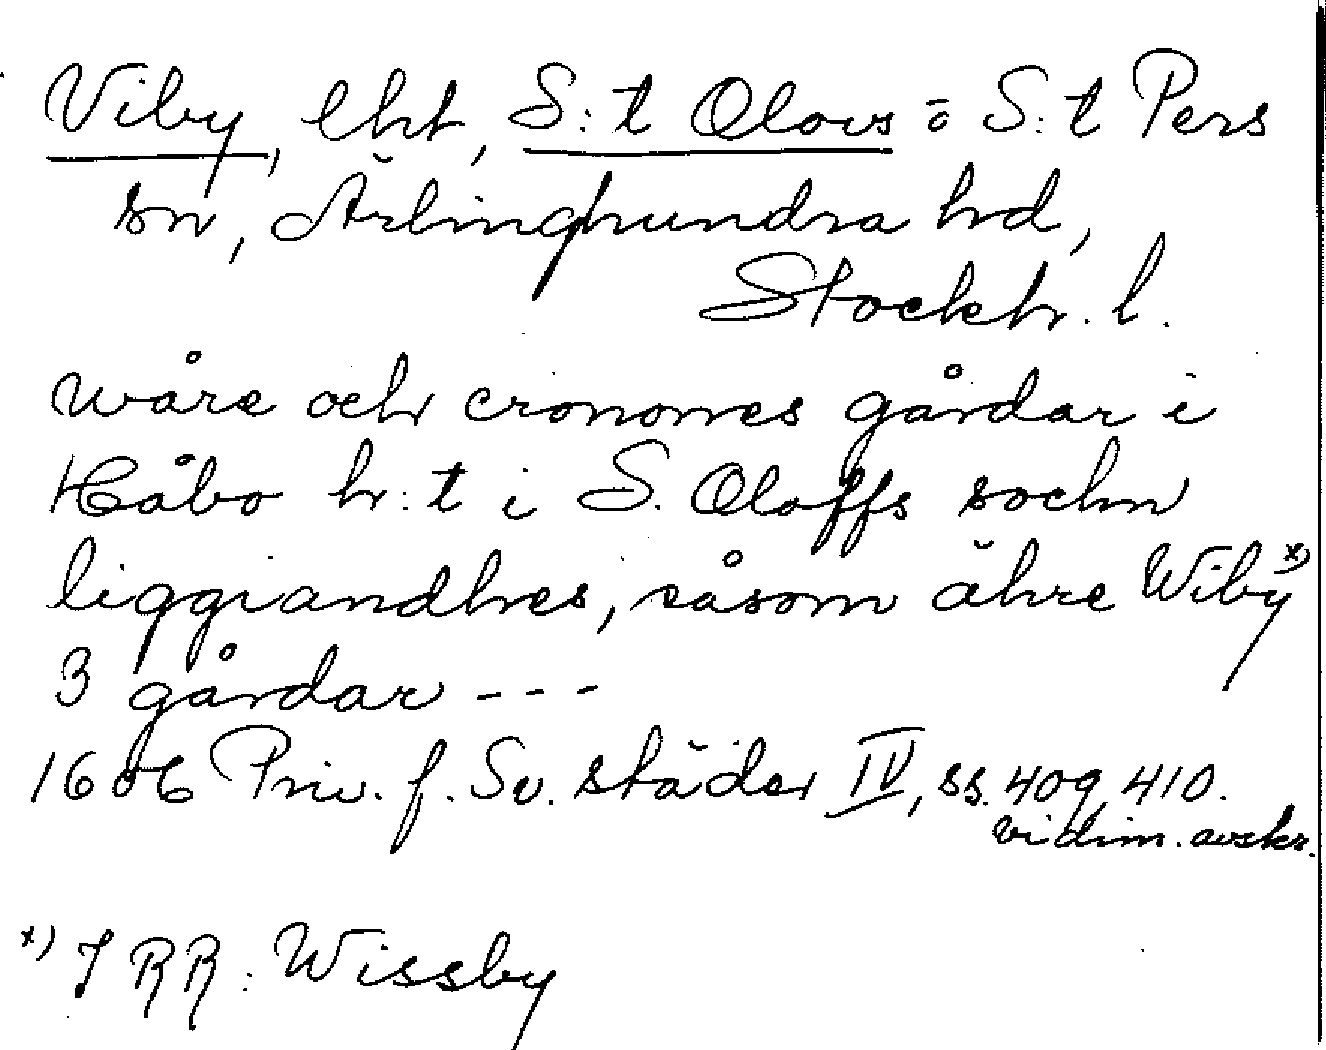 Viby, eht, S:t Olovs = S:t Pers
sn, Ärlinghundra hd,
Stockh. l.
wåre och cronones gårdar i
Håbo hr:t i S. Oloffs sochn
liggiandhes, såsom ähre Wiby x)
3 gårdar - - -
1606 Priv. f. Sv. städer IV, ss. 409, 410.
vidim. avskr.
x) I RR: Wissby